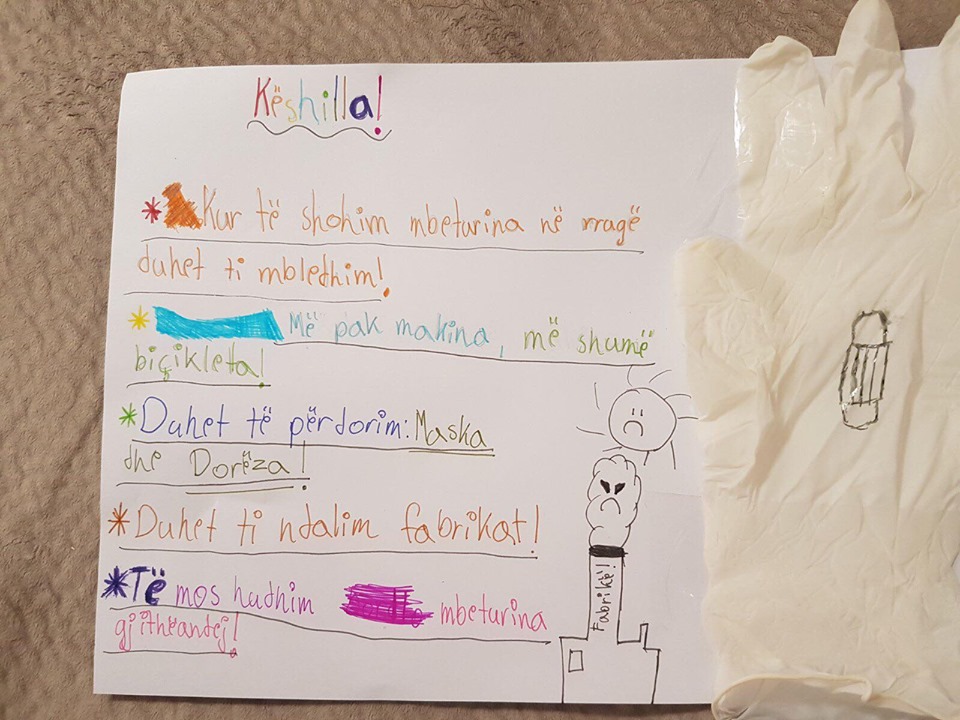 Këshilla!
* Kur të shohim mbeturina në rrugë
duhet ti mbledhim!
* Më pak makina, më shumë
biçikleta!
* Duhet të përdorim: Maska
dhe Dorëza!
* Duhet ti ndalim fabrikat!
* Të mos hudhim mbeturina
gjithëandej!
Fabrikë!